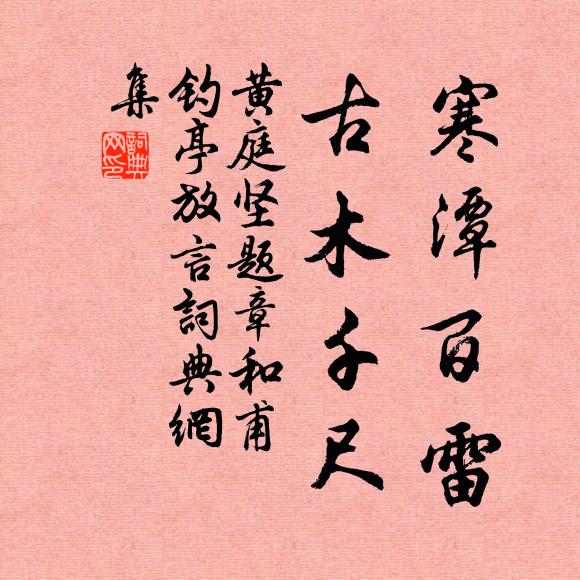 寒潭百雷
古木千尺
黄庭坚题章和甫
钓亭放言詞典網
集
詞典网印